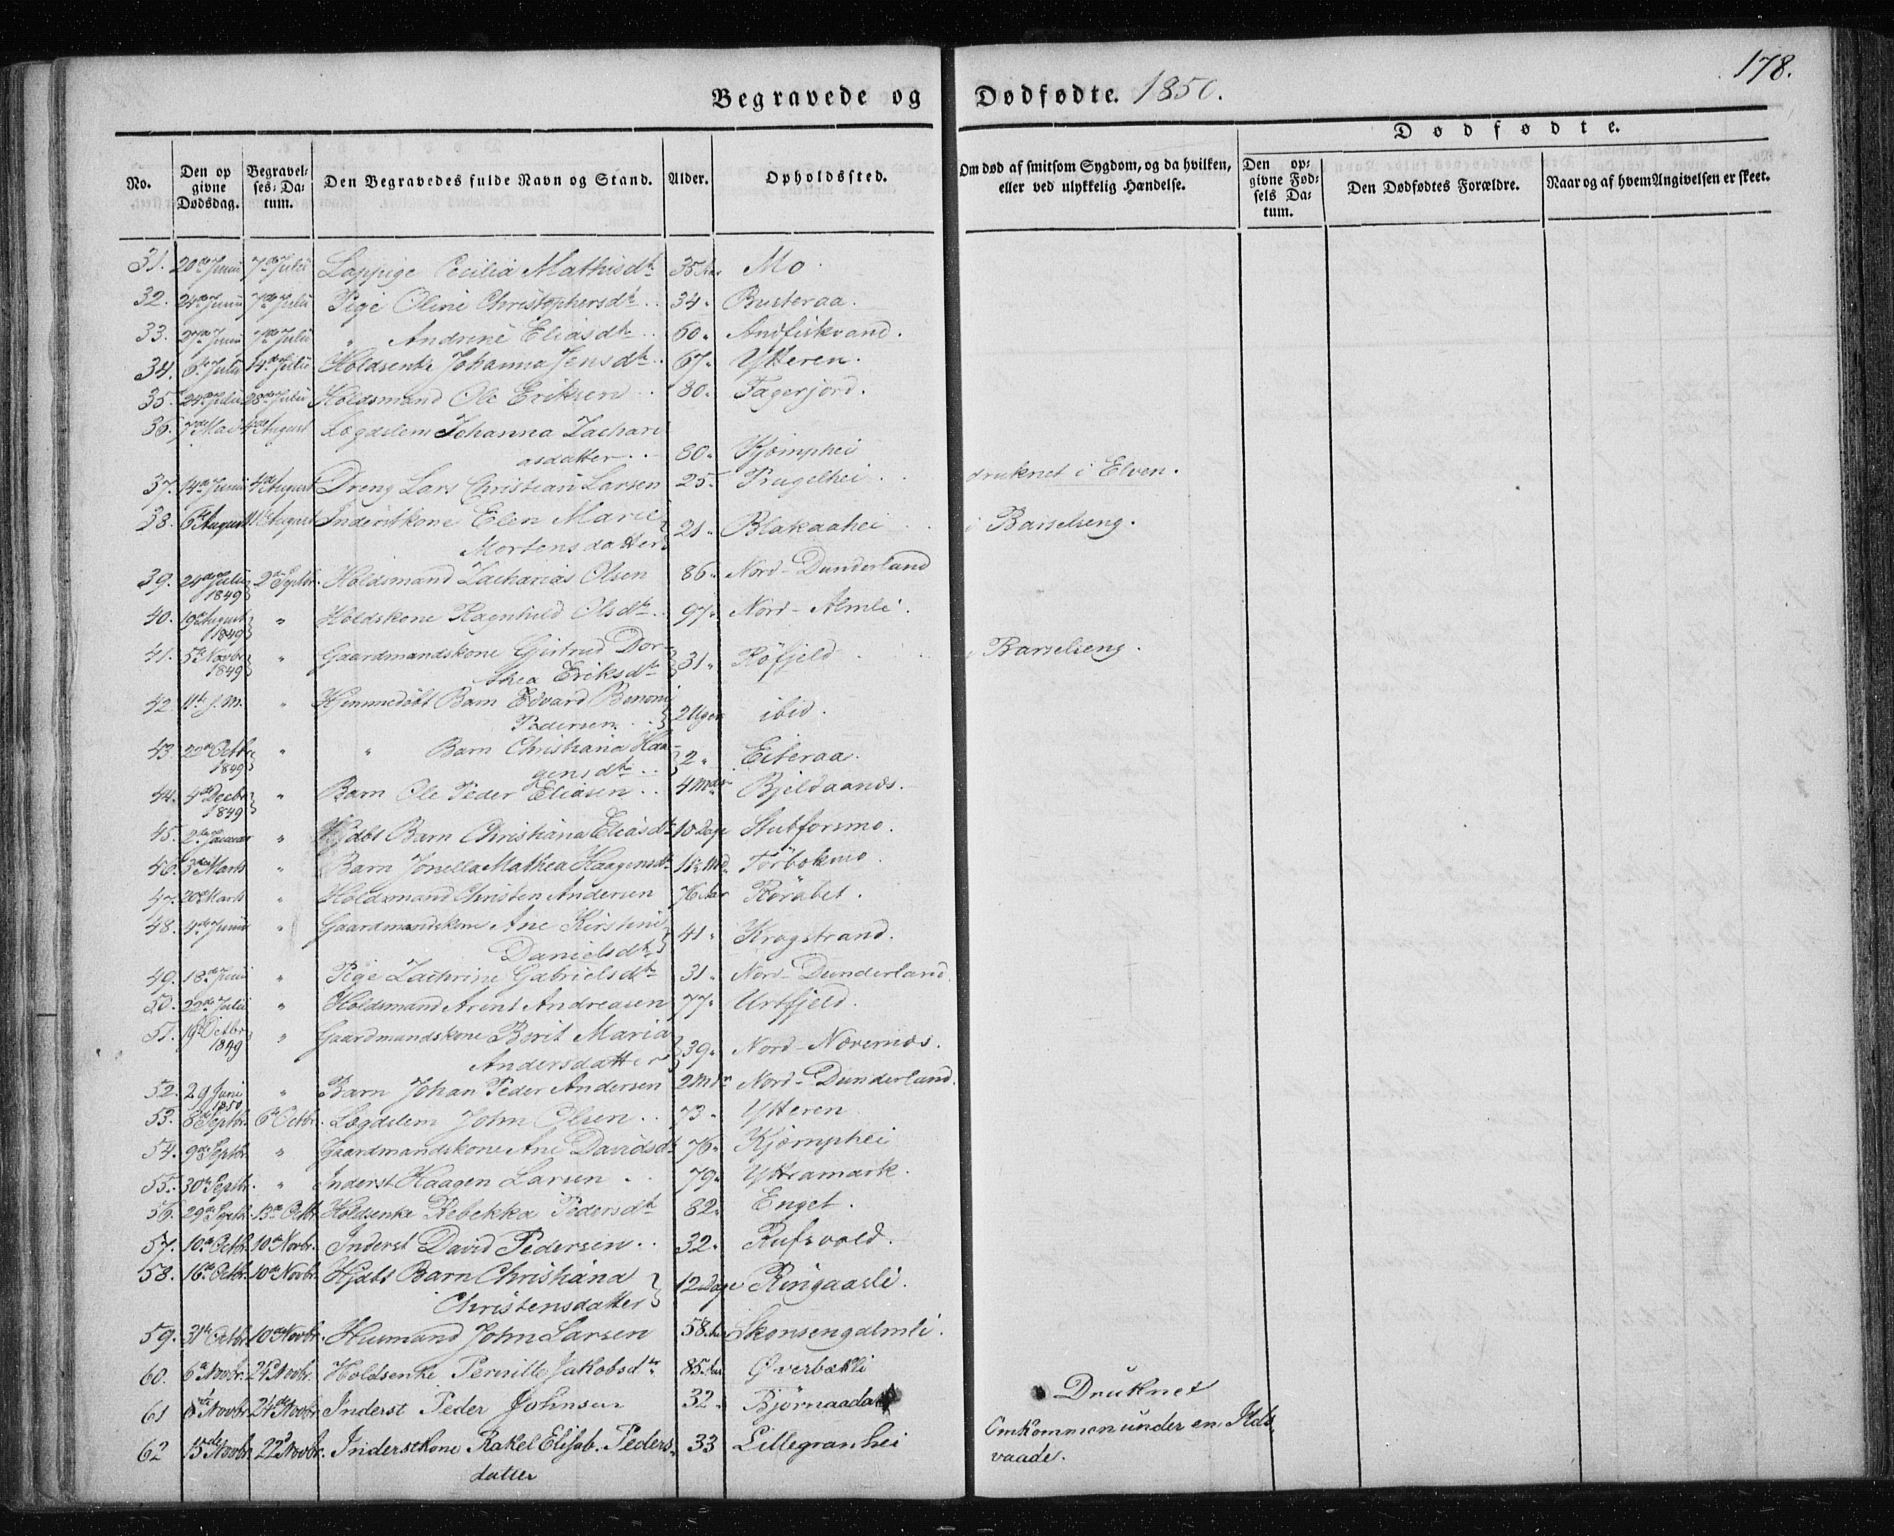 178.
Begravede og Dødfødte. 1850.
Dødfødte.
No.
Den op
givne
Dødsdag.
Begravel-
ses-Da-
tum.
Den Begravedes fulde Navn og Stand.
Alder.
Opholdssted.
Om død af smitsom Sygdom, og da hvilken,
eller ved ulykkelig Hændelse.
Den op-
givne Fød-
sels Da-
tum.
Den Dødfødtes Forældre.
Naar og af hvem Angivelsen er skeet.
31. 20de Junii 7de Julii Lappige Cecilia Mathisdtr 35 Aar Mo.
32. 24de Junii 7de Julii Pige Oline Christophersdtr 34 " Busteraa.
33. 27de Junii 7de Julii " Andrine Eliasdtr 60 " Andfiskvand.
34. 6te Julii 14de Julii Holdsenke Johanna Jensdtr 67 " Ytteren.
35. 24de Julii 28de Julii Holdsmand Ole Eriksen 80 " Fagerjord.
36. 7de Mai 4de August Lægdslem Johanna Zachari-
asdatter 80 " Kjømphei
37. 14de Junii 4de August Dreng Lars Christian Larsen 25 " Kugelhei druknet i Elven.
38. 6te August 11te August Inderstkone Elen Marie
Mortensdatter 21 " Blakaahei i Barselseng.
39. 24de Julii 1849 2de Septbr. Holdsmand Zacharias Olsen 86 " Nord-Dunderland
40. 19de August 1849 " Holdskone Ragnhild Olsdtr 97 " Nord-Almli.
41. 5te Novbr 1849 " Gaardmandskone Gjertrud Dor-
thea Eriksdtr 31 " Røfjeld i Barselseng.
42 11te s. M. " Hjemmedøbt Barn Edvard Benoni
Pedersen 2 Uger ibid.
43. 22de Octbr 1849 " " Barn Christiana Haa-
gensdtr 2 " Eiteraa.
44. 4de Decbr 1849 " Barn Ole Peder Eliasen 4 Mdr Bjeldaanæs.
45. 2den Januar " Hjdbt Barn Christiana Eliasdtr 10 Dage Stubforsmo.
46. 3die Marts " Barn Jonella Mathea Haagensdtr 1½ Md. Førbekmo.
47. 20de Marts " Holdsmand Christen Andersen 76 Aar Rørabet.
48. 4de Junii " Gaardmandskone Ane Kirstine
Danielsdtr 41 " Krogstrand.
49. 18de Junii " Pige Zachrine Gabrielsdtr 31 " Nord-Dunderland.
50. 22de Julii " Holdsmand Arent Andreasen 77 " Urtfjeld.
51. 19de Octbr 1849 " Gaardmandskone Berit Maria
Andersdatter 39 " Nord-Nævernæs.
52. 29 Juni 1850 " Barn Johan Peder Andersen 2 Mdr Nord-Dunderland.
53. 8de Septbr. 6te Octbr. Lægdslem John Olsen 73 " Ytteren
54. 9de Septbr. " Gaardmandskone Ane Davidsdtr 76 " Kjømphei
55. 30te Septbr. " Inderst Haagen Larsen 79 " Yttramark.
56. 29de Septbr. 13de Octbr Holdsenke Rebekka Pedersdtr 82 " Enget.
57. 10de Octbr. 10de Novbr. Inderst David Pedersen 32 " Rufsvold.
58. 16de Octbr. 10de Novbr. Hjdbt Barn Christiana
Christensdatter 12 Dage Ringaasli.
59. 31te Octbr. 10de Novbr. Huusmand John Larsen 58 Aar Skonsengalmli.
60. 6te Novbr. 24de Novbr. Holdsenke Pernille Jakobsdtr 85 Aar Øverbækli
61 8de Novbr. 24de Novbr. Inderst Peder Johnsen 32 " Bjørnaadal Druknet
62 15de Novbr. 22de Novbr. Inderstkone Rakel Elisab. Peders-
datter 33 Lillegranhei Omkommen under en Ilds-
vaade.